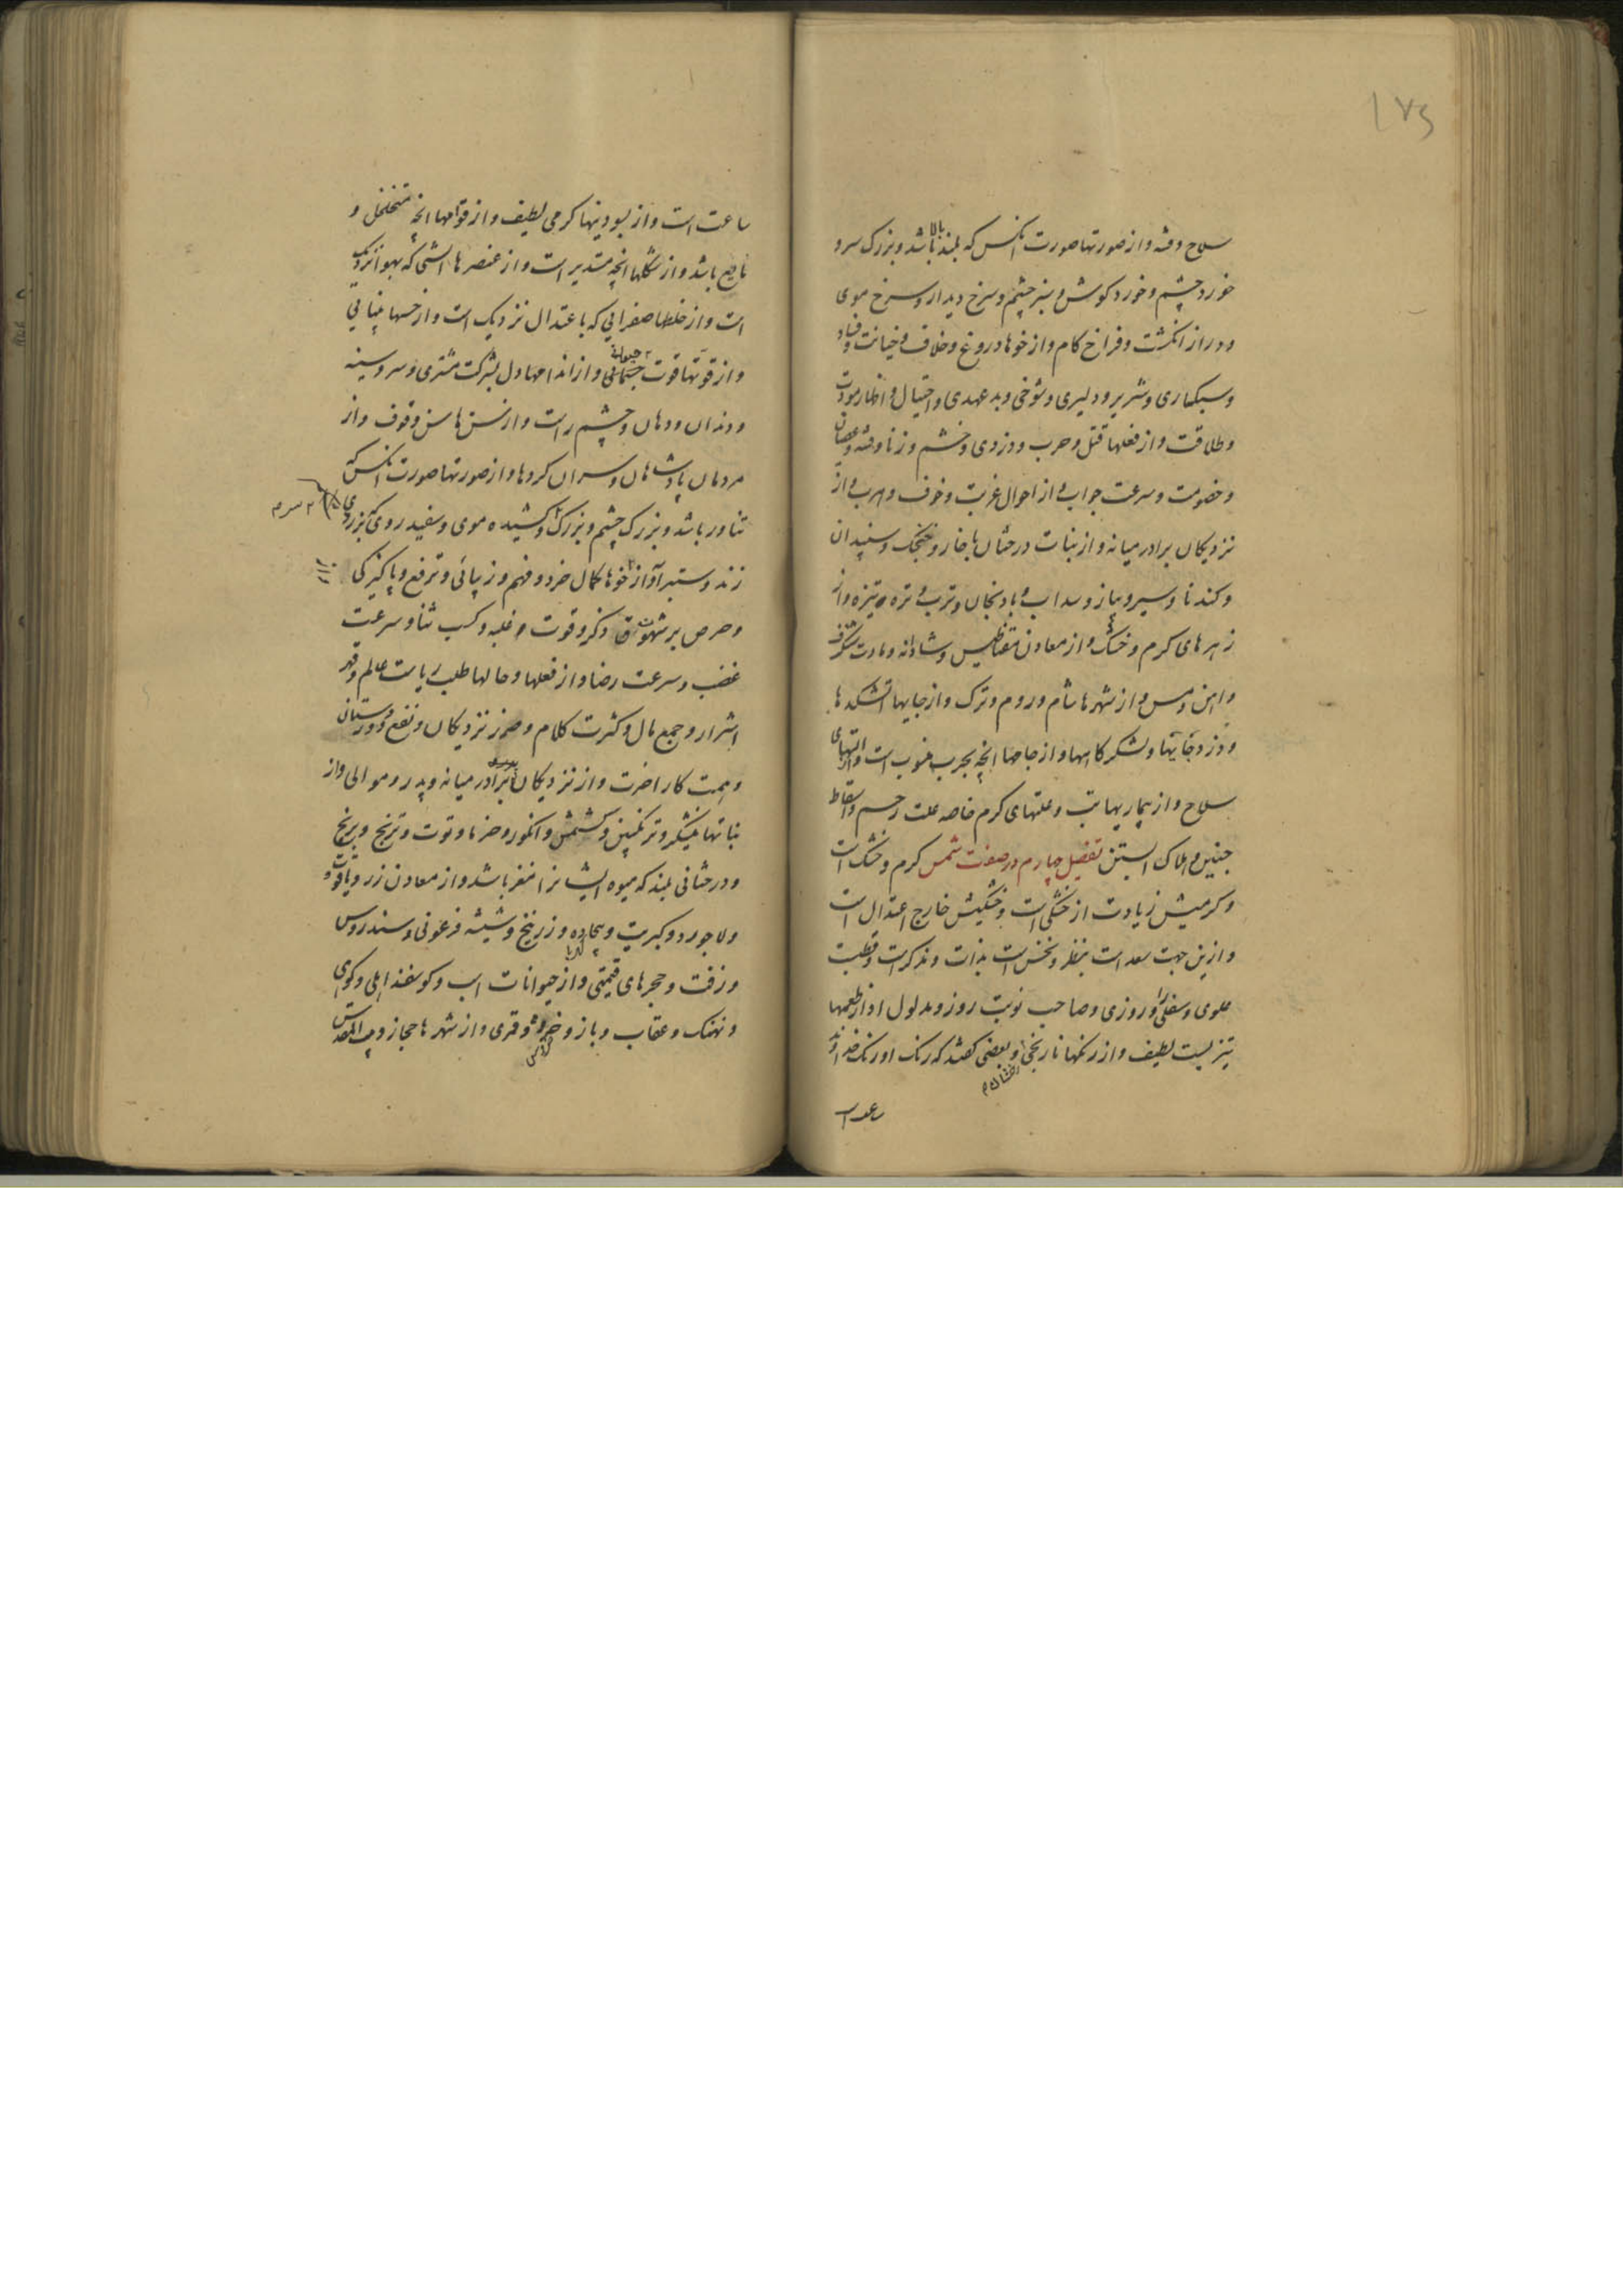 ۱۷۵
سلاح وقه و از صورتها صورت انکس که بلند بالا باشد و بزرک سر و
خورد چشم و خورد کوش و سبز چشم و سرخ دیدار و سرخ موی
و دراز انکشت و فراخ کام و از خوها دروغ و خلاف و خیانت و فساد
و سبکساری و شریر و دلیری و شوخی و بد عهدی و احتیال و اظهار مودت
و طلاقت و از فعلها قتل و حرب و دزدی و خشم و زنا و عصیان
و خصومت و سرعت جواب و از احوال غربت و خوف و هرب و از
نزدیکان برادر میانه و از نبات درختان با خار و خنجک و سپندان
و کندنا و سیر و پیاز و سداب و بادنجان و ترب و تره تیزه و از
زهرهای کرم و خشک و از معادن مقناطیس و شادنه و مادت شنکرف
و اهن و مس و از شهرها شام و روم و ترک و از جایها اتشکدها
و دزدخانها و لشکرکاهها و از جاحها انچه بحرب منسوب است و از التهای
سلاح و از بیماریها تب و علتهای کرم خاصه علت رحم و اسقاط
جنین و هلاک ابستن تفصیل چهارم در صفت شمس کرم و خشک است
و کرمیش زیادت از خشکی است و خشکیش خارج اعتدال است
و ازین جهت سعد است بنظر و نحس است بذات و مذکر است و قطب
علوی و سفلی را و روزی و صاحب نوبت روز و مدلول او از طعمها
تیزیست لطیف و از رنکها نارنجی و بعضی کفتند که رنک او رنک خداوند
ساعت است
ساعت است و از بسودنیها کرمی لطیف و از قوامها انچه متخلخل و
ناضج باشد و از شکلها انچه مستدیر است و از عنصرها اتشی که بهوا نزدیک
است و از خلطها صفرایی که باعتدال نزدیک است و از حسها بینایی
و از قوتها قوت حیوانی و از اندامها دل بشرکت مشتری و سر و سینه
و دندان و دهان و چشم راست و از سن ها سن وقوف و از
مردمان پادشاهان و سران کروها و از صورتها صورت انکس که
تناور باشد و بزرک چشم و بزرک و کشیده موی و سفید روی که بزردی
زند و ستبر آواز خوها کمال خرد و فهم و زیبائی و ترفع و پاکیزکی
و حرص بر شهوت و ذکر و قوت و غلبه و کسب ثنا و سرعت
غضب و سرعت رضا و از فعلها و حالها طلب ریاست عالم و قهر
اشرار و جمع مال و کثرت کلام و ضرر نزدیکان و نفع دوردستان
و همت کار اخرت و از نزدیکان برادر میانه و پدر و موالی و از
نباتها نیشکر و ترنکبین و کشمش و انکور و خرما و توت و ترنج و برنج
و درختانی بلند که میوه ایشانرا مغز باشد و از معادن زر و یاقوت
و لاجورد و کبریت و بیجاده و زرنیخ و شیشه فرعونی و سندروس
و زفت و حجرهای قیمتی و از حیوانات اسب و کوسفند اهلی و کوهی
و نهنک و عقاب و باز و خروس و قمری و از شهرها حجاز و بیت المقدس